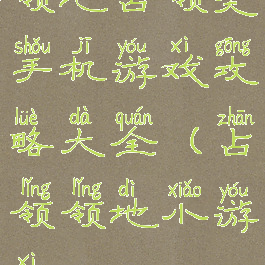 领地占领类
shǒu jī yóu xì gōng
手机游戏攻
lüè dà quán zhān
略大全（占
lǐng lǐng dì xiǎo yóu
领领地小游
xì